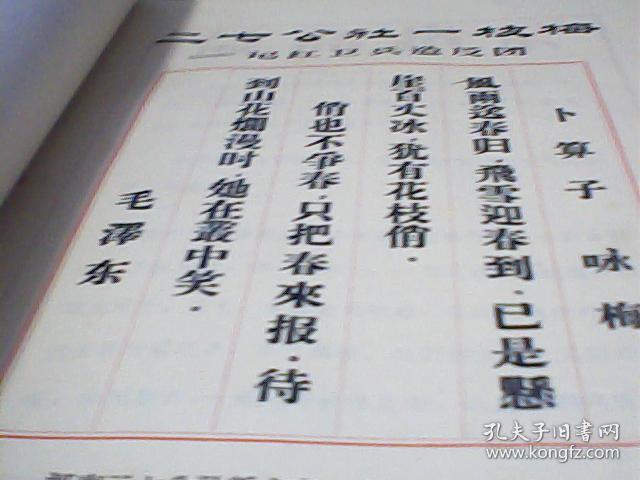 二七公社一枝梅
——记红卫兵造反团
卜算子 咏梅
風雨送春归,飛雪迎春到.已是懸
崖百丈冰,犹有花枝俏.
俏也不爭春,只把春來报.待
到山花爛漫时,她在叢中笑.
毛澤东
孔夫子旧书网
www.kongfz.com